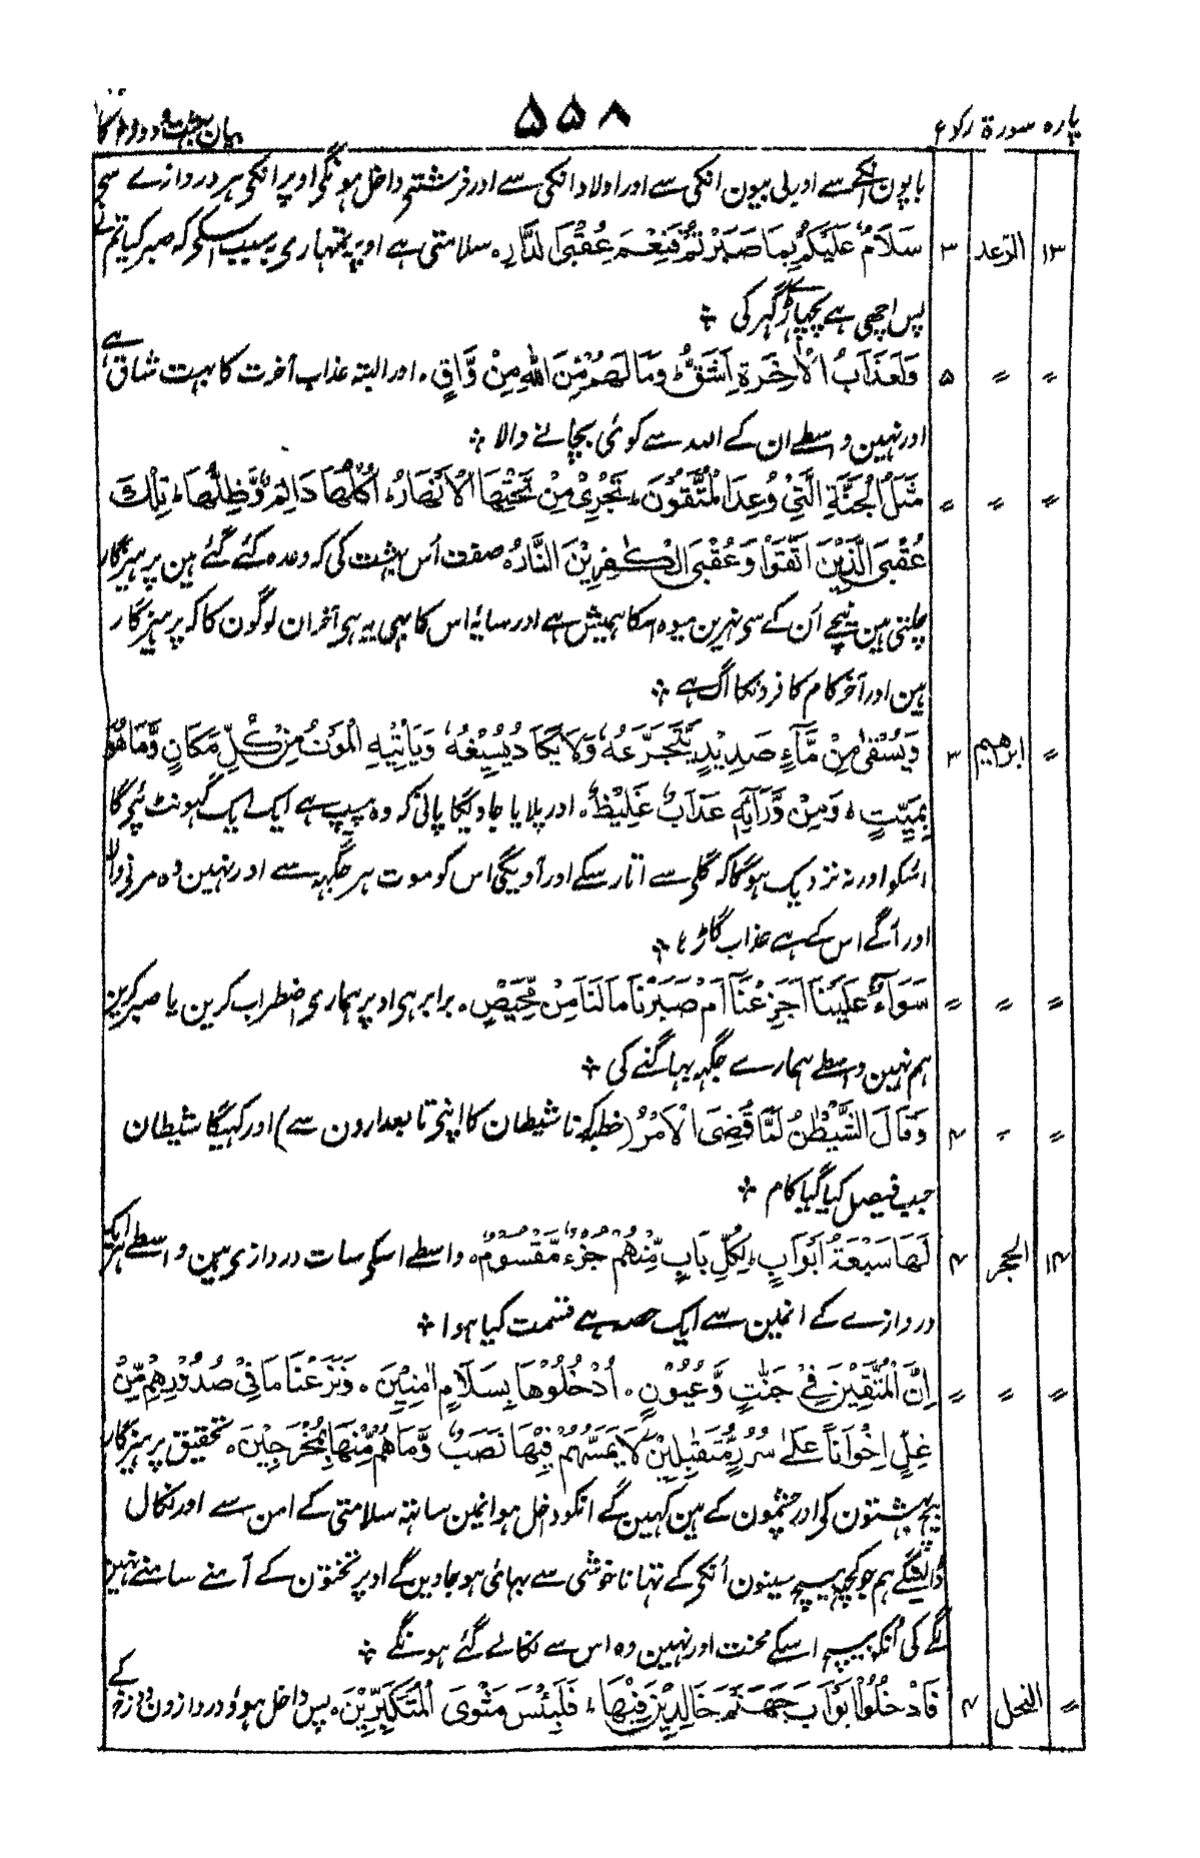 پارہ سورۃ رکوع ۵۵۸ بیان بہشت و دوزخ کا
باپون انکے سے اور بی بیون انکی سے اور اولاد انکی سے اور فرشتے داخل ہونگی اوپر انکی ہر دروازے سے
۱۳ الرّعد ۳ سَلَامٌ عَلَيْكُمْ بِمَا صَبَرْتُمْ فَنِعْمَ عُقْبَى الدَّارِ ۔ سلامتی ہے اوپر تمہاری بہ سبب اسکی کہ صبر کیا تم نے
پس اچھی ہے پچھاڑی گہر کی ؞
〃 〃 ۵ وَلَعَذَابُ الْاٰخِرَةِ اَشَقُّ وَمَا لَهُمْ مِّنَ اللهِ مِنْ وَّاقٍ ۔ اور البتہ عذاب آخرت کا بہت شاق ہے
اور نہین واسطے ان کے اللہ سے کوئی بچانے والا ؞
〃 〃 〃 مَثَلُ الْجَنَّةِ الَّتِيْ وُعِدَ الْمُتَّقُوْنَ ۔ تَجْرِيْ مِنْ تَحْتِهَا الْاَنْهَارُ ۔ اُكُلُهَا دَائِمٌ وَّظِلُّهَا ۔ تِلْكَ
عُقْبَى الَّذِيْنَ اتَّقَوْا وَعُقْبَى الْكٰفِرِيْنَ النَّارُ ۔ صفت اُس بہشت کی کہ وعدہ کئے گئے ہین پرہیزگار
چلتی ہین نیچے اُن کے سی نہرین میوہ اسکا ہمیش ہے اور سایہ اس کا بہی یہ ہی آخر ان لوگون کا کہ پرہیزگار
ہین اور آخر کام کافرونکا آگ ہے ؞
〃 ابراہیم ۳ وَيُسْقٰى مِنْ مَّآءٍ صَدِيْدٍ يَّتَجَرَّعُهٗ وَلَا يَكَادُ يُسِيْغُهٗ وَيَاْتِيْهِ الْمَوْتُ مِنْ كُلِّ مَكَانٍ وَّمَا هُوَ
بِمَيِّتٍ ۔ وَمِنْ وَّرَآئِهٖ عَذَابٌ غَلِيْظٌ ۔ اور پلایا جاویگا پانی کہ وہ پیپ ہے ایک ایک گہونٹ پئیگا
اسکو اور نہ نزدیک ہوگا کہ گلے سے اتار سکے اور آویگی اس کو موت ہر جگہہ سے اور نہین وہ مرنے والا
اور آگے اس کے ہے عذاب گاڑہا ؞
〃 〃 〃 سَوَآءٌ عَلَيْنَا اَجَزِعْنَا اَمْ صَبَرْنَا مَا لَنَا مِنْ مَّحِيْصٍ ۔ برابر ہی اوپر ہماری اضطراب کرین یا صبر کرین
ہم نہین واسطے ہمارے جگہہ بہاگنے کی ؞
〃 〃 ۴ وَقَالَ الشَّيْطٰنُ لَمَّا قُضِيَ الْاَمْرُ (خطبہ کرنا شیطان کا اپنی تابعدارون سے) اور کہیگا شیطان
جب فیصل کیا گیا کام ؞
۱۴ الحجر ۴ لَهَا سَبْعَةُ اَبْوَابٍ ۔ لِكُلِّ بَابٍ مِّنْهُمْ جُزْءٌ مَّقْسُوْمٌ ۔ واسطے اسکی سات دروازی ہین واسطے ہر ایک
دروازے کے انمین سے ایک حصہ ہے قسمت کیا ہوا ؞
〃 〃 〃 اِنَّ الْمُتَّقِيْنَ فِيْ جَنّٰتٍ وَّعُيُوْنٍ ۔ اُدْخُلُوْهَا بِسَلَامٍ اٰمِنِيْنَ ۔ وَنَزَعْنَا مَا فِيْ صُدُوْرِهِمْ مِّنْ
غِلٍّ اِخْوَانًا عَلٰى سُرُرٍ مُّتَقٰبِلِيْنَ لَا يَمَسُّهُمْ فِيْهَا نَصَبٌ وَّمَا هُمْ مِّنْهَا بِمُخْرَجِيْنَ ۔ تحقیق پرہیزگار
بیچ بہشتون کی اور چشمون کے ہین کہین گے انکو داخل ہو انمین ساتہہ سلامتی کے امن سے اور نکال
ڈالینگے ہم جو کچھ بیچ سینون اُنکی کے تہا ناخوشی سے بہائی ہو جاوین گے اوپر تختون کے آمنے سامنے نہین
لگے کی اُنکو بیچ اسکے محنت اور نہین وہ اس سے نکالے گئے ہونگے ؞
〃 النحل ۴ فَادْخُلُوْا اَبْوَابَ جَهَنَّمَ خَالِدِيْنَ فِيْهَا ۔ فَلَبِئْسَ مَثْوَى الْمُتَكَبِّرِيْنَ ۔ پس داخل ہوؤ دروازون دوزخ کے